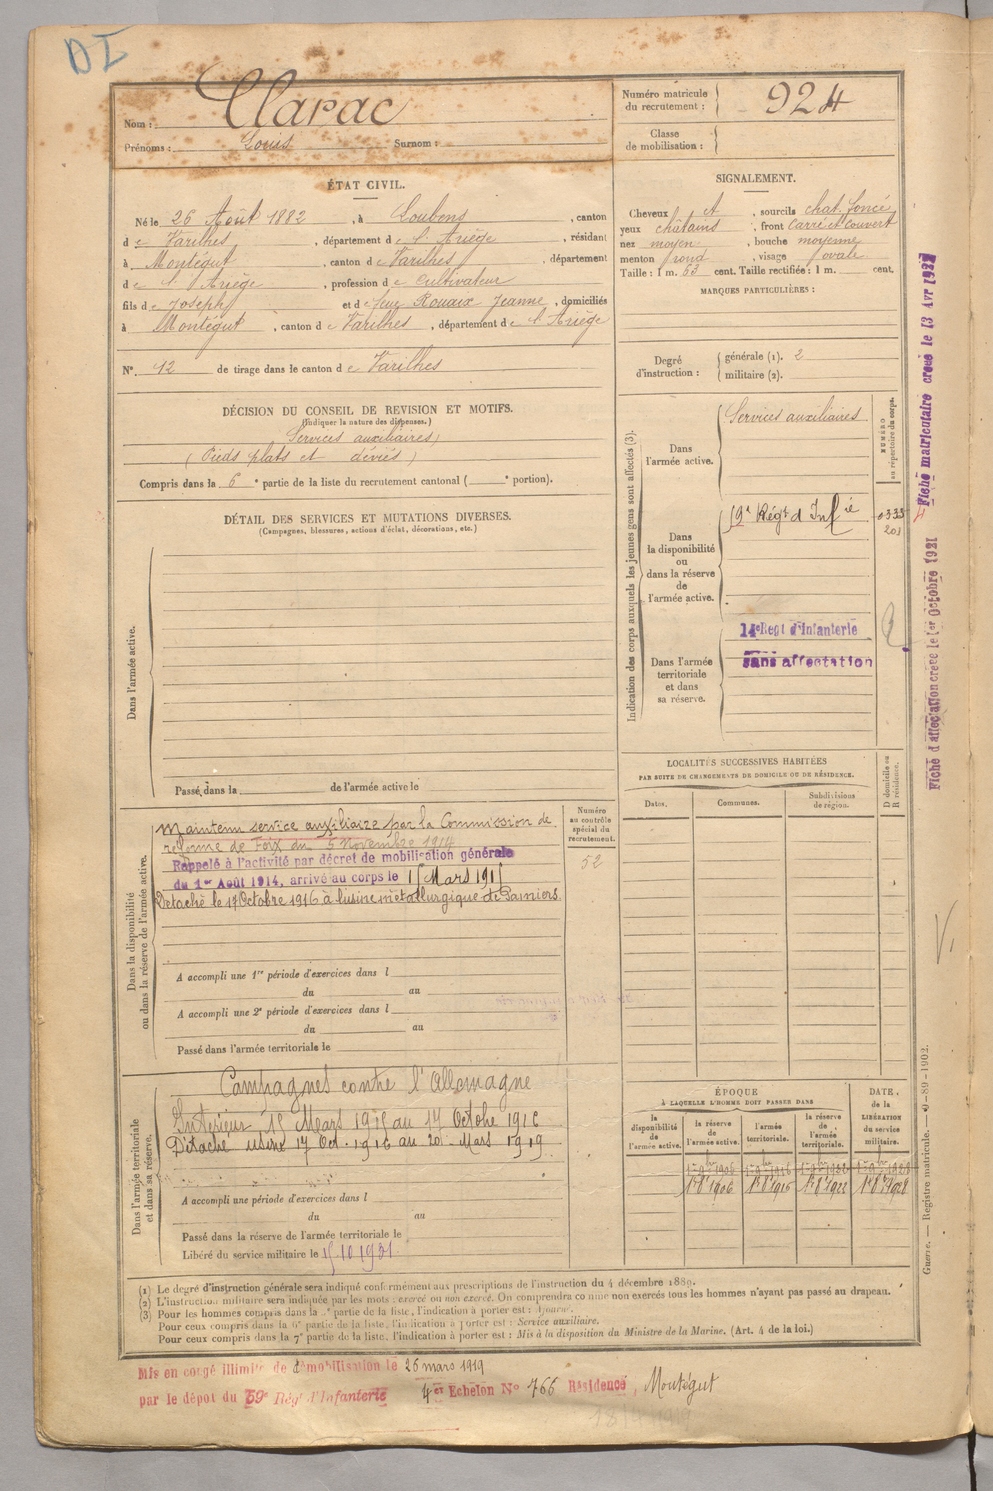 DI
Nom : Clarac
Prénoms : Louis Surnom :
Numéro matricule du recrutement : 924
Classe de mobilisation :
ÉTAT CIVIL.
Né le 26 Août 1882, à Loubens, canton
de Varilhes, département de l'Ariège, résidant
à Montégut, canton de Varilhes, département
de l'Ariège, profession de Cultivateur
fils de Joseph et de feue Rouaix Jeanne, domiciliés
à Montégut, canton de Varilhes, département de l'Ariège
N° 12 de tirage dans le canton de Varilhes
SIGNALEMENT.
Cheveux et, sourcils chat. foncé
yeux châtains, front Carré et Couvert
nez moyen, bouche moyenne
menton rond, visage ovale
Taille : 1 m. 63 cent. Taille rectifiée : 1 m. cent.
MARQUES PARTICULIÈRES :
Degré d'instruction : générale (1). 2
militaire (2).
DÉCISION DU CONSEIL DE REVISION ET MOTIFS.
(Indiquer la nature des dispenses.)
Services auxiliaires
(Pieds plats et déviés)
Compris dans la 6e partie de la liste du recrutement cantonal ( e portion).
DÉTAIL DES SERVICES ET MUTATIONS DIVERSES.
(Campagnes, blessures, actions d'éclat, décorations, etc.)
Dans l'armée active.
Passé dans la de l'armée active le
Indication des corps auxquels les jeunes gens sont affectés (3).
NUMÉRO au répertoire du corps.
Dans l'armée active.
Services auxiliaires
Dans la disponibilité ou dans la réserve de l'armée active.
59e Régt d'Infie
Dans l'armée territoriale et dans sa réserve.
14e Regt d'Infanterie
sans affectation
Fiche d'affectation creee le 1er Octobre 1921
Fiché matriculaire creeé le 13 Avr
LOCALITÉS SUCCESSIVES HABITÉES
PAR SUITE DE CHANGEMENTS DE DOMICILE OU DE RÉSIDENCE.
Dates. Communes. Subdivisions de région.
D domicile ou R résidence.
Dans la disponibilité ou dans la réserve de l'armée active.
Numéro au contrôle spécial du recrutement.
52
Maintenu service auxiliaire par la Commission de
réforme de Foix du 5 Novembre 1914
Rappelé à l'activité par décret de mobilisation générale
du 1er Août 1914, arrivé au corps le 15 Mars 1915
Détaché le 17 Octobre 1916 à l'usine métallurgique de Pamiers
A accompli une 1re période d'exercices dans l
du au
A accompli une 2e période d'exercices dans l
du au
Passé dans l'armée territoriale le
Dans l'armée territoriale et dans sa réserve.
Campagnes contre l'Allemagne
Intérieur 15 Mars 1915 au 17 Octobre 1916
Détaché usine 17 Oct. 1916 au 20 Mars 1919
A accompli une période d'exercices dans l
du au
Passé dans la réserve de l'armée territoriale le
Libéré du service militaire le 15 10 1931
ÉPOQUE
À LAQUELLE L'HOMME DOIT PASSER DANS
la disponibilité de l'armée active.
la réserve de l'armée active.
l'armée territoriale.
la réserve de l'armée territoriale.
DATE, de la LIBÉRATION du service militaire.
1er 8bre 1906
Guerre. — Registre matricule. — 9-89-1902.
(1) Le degré d'instruction générale sera indiqué conformément aux prescriptions de l'instruction du 4 décembre 1889.
(2) L'instruction militaire sera indiquée par les mots : exercé ou non exercé. On comprendra comme non exercés tous les hommes n'ayant pas passé au drapeau.
(3) Pour les hommes compris dans la 5e partie de la liste, l'indication à porter est : Ajourné.
Pour ceux compris dans la 6e partie de la liste, l'indication à porter est : Service auxiliaire.
Pour ceux compris dans la 7e partie de la liste, l'indication à porter est : Mis à la disposition du Ministre de la Marine. (Art. 4 de la loi.)
Mis en congé illimité de démobilisation le 26 mars 1919
par le dépot du 59e Régt d'Infanterie 4er Echelon N° 766 Résidence, Montégut